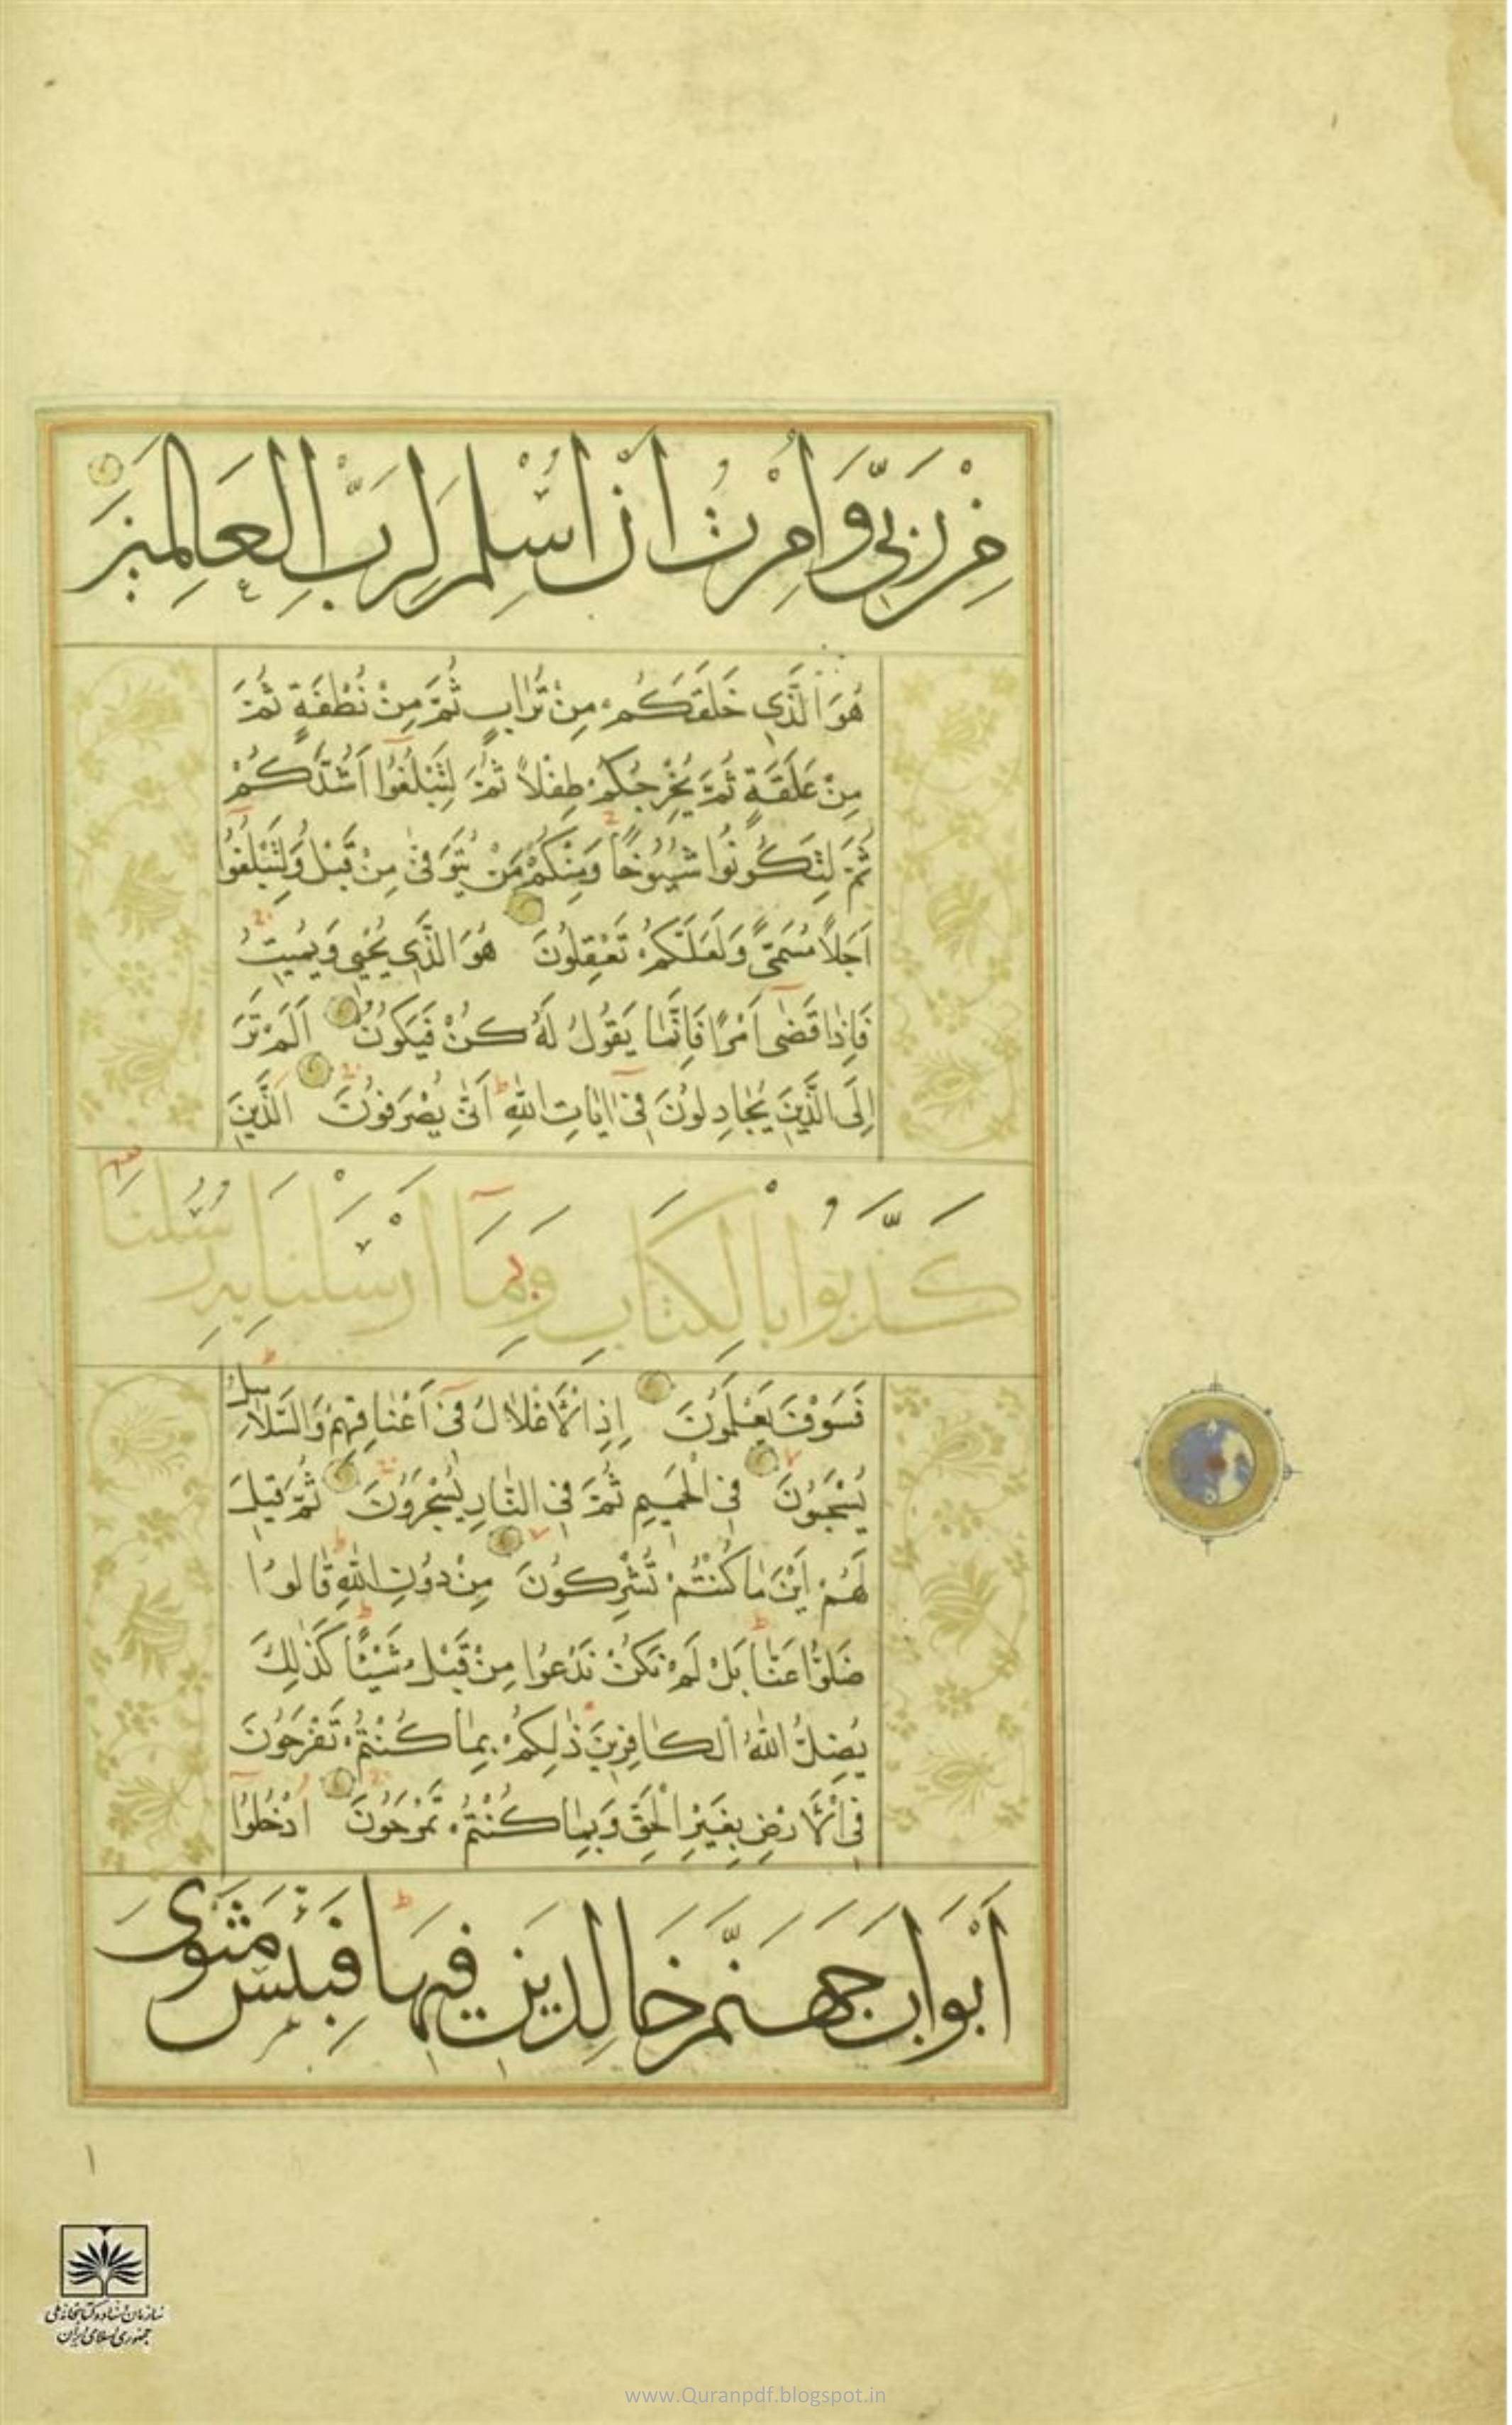 مِنْ رَبِّي وَأُمِرْتُ أَنْ أُسْلِمَ لِرَبِّ الْعَالَمِينَ
هُوَ الَّذِي خَلَقَكُمْ مِنْ تُرَابٍ ثُمَّ مِنْ نُطْفَةٍ ثُمَّ
مِنْ عَلَقَةٍ ثُمَّ يُخْرِجُكُمْ طِفْلًا ثُمَّ لِتَبْلُغُوا أَشُدَّكُمْ
ثُمَّ لِتَكُونُوا شُيُوخًا وَمِنْكُمْ مَنْ يُتَوَفَّىٰ مِنْ قَبْلُ وَلِتَبْلُغُوا
أَجَلًا مُسَمًّى وَلَعَلَّكُمْ تَعْقِلُونَ هُوَ الَّذِي يُحْيِي وَيُمِيتُ
فَإِذَا قَضَىٰ أَمْرًا فَإِنَّمَا يَقُولُ لَهُ كُنْ فَيَكُونُ أَلَمْ تَرَ
إِلَى الَّذِينَ يُجَادِلُونَ فِي آيَاتِ اللَّهِ أَنَّىٰ يُصْرَفُونَ الَّذِينَ
كَذَّبُوا بِالْكِتَابِ وَبِمَا أَرْسَلْنَا بِهِ رُسُلَنَا
فَسَوْفَ يَعْلَمُونَ إِذِ الْأَغْلَالُ فِي أَعْنَاقِهِمْ وَالسَّلَاسِلُ
يُسْحَبُونَ فِي الْحَمِيمِ ثُمَّ فِي النَّارِ يُسْجَرُونَ ثُمَّ قِيلَ
لَهُمْ أَيْنَ مَا كُنْتُمْ تُشْرِكُونَ مِنْ دُونِ اللَّهِ قَالُوا
ضَلُّوا عَنَّا بَلْ لَمْ نَكُنْ نَدْعُوا مِنْ قَبْلُ شَيْئًا كَذَٰلِكَ
يُضِلُّ اللَّهُ الْكَافِرِينَ ذَٰلِكُمْ بِمَا كُنْتُمْ تَفْرَحُونَ
فِي الْأَرْضِ بِغَيْرِ الْحَقِّ وَبِمَا كُنْتُمْ تَمْرَحُونَ ادْخُلُوا
أَبْوَابَ جَهَنَّمَ خَالِدِينَ فِيهَا فَبِئْسَ مَثْوَى
١
سازمان اسناد و کتابخانه ملی
جمهوری اسلامی ایران
www.Quranpdf.blogspot.in